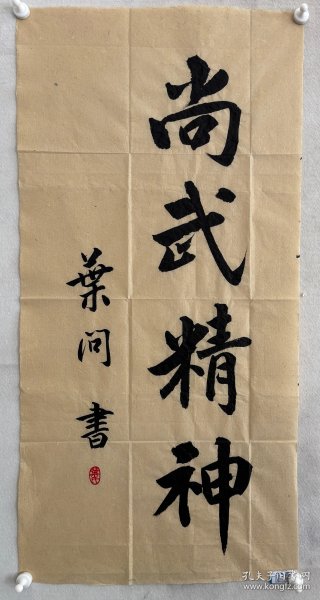 尚武精神
葉問書
孔夫子旧书网
www.kongfz.com